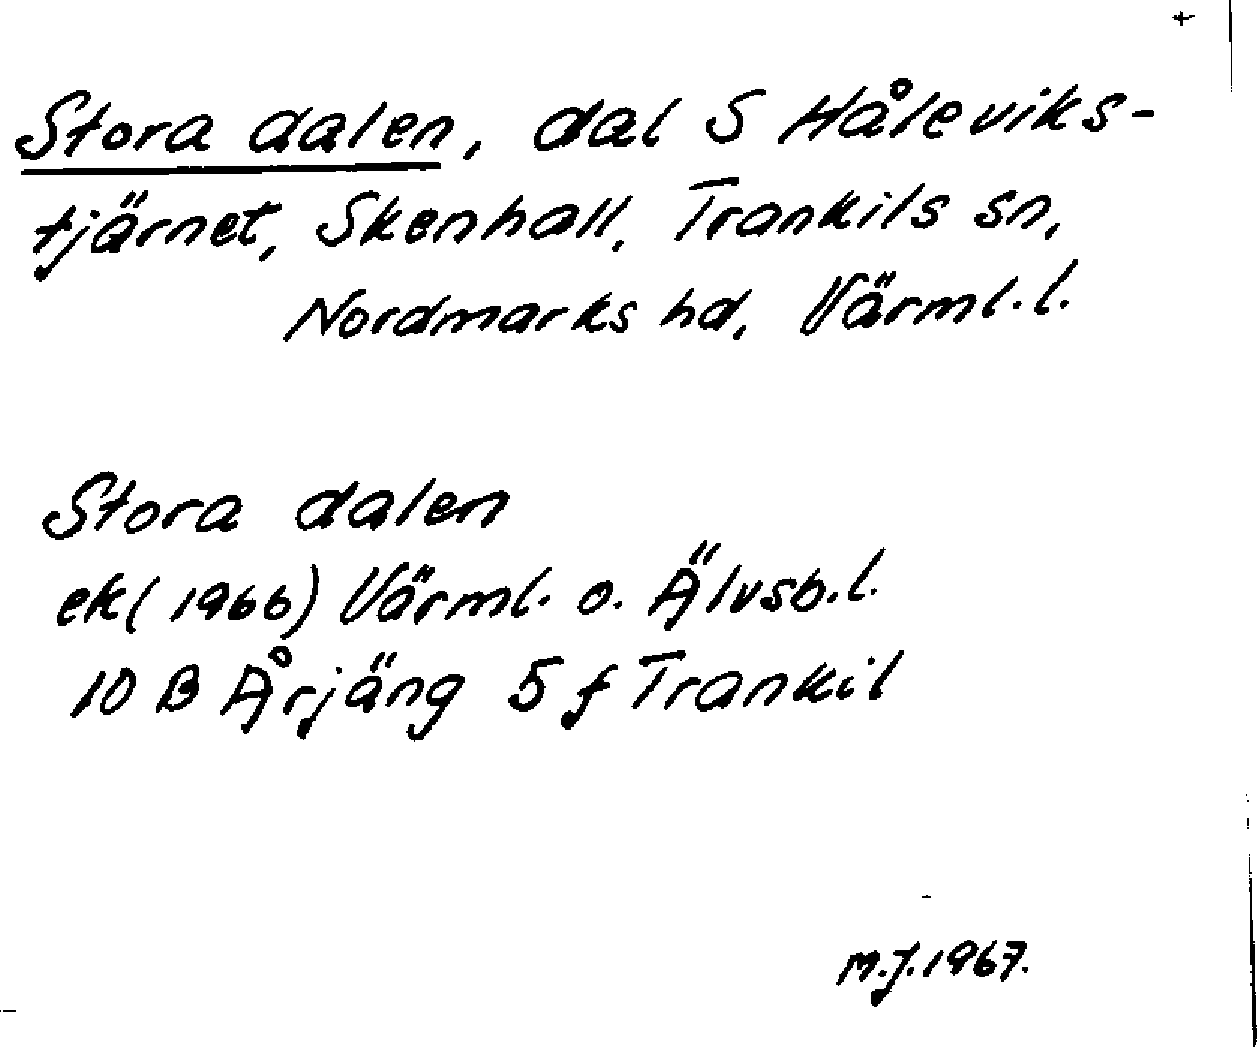 Stora dalen, dal S Håleviks-
tjärnet, Skenhall, Trankils sn,
Nordmarks hd, Värml. l.
Stora dalen
ek (1966) Värml. o. Älvsb. l.
10 B Årjäng 5 f Trankil
M.J. 1967.